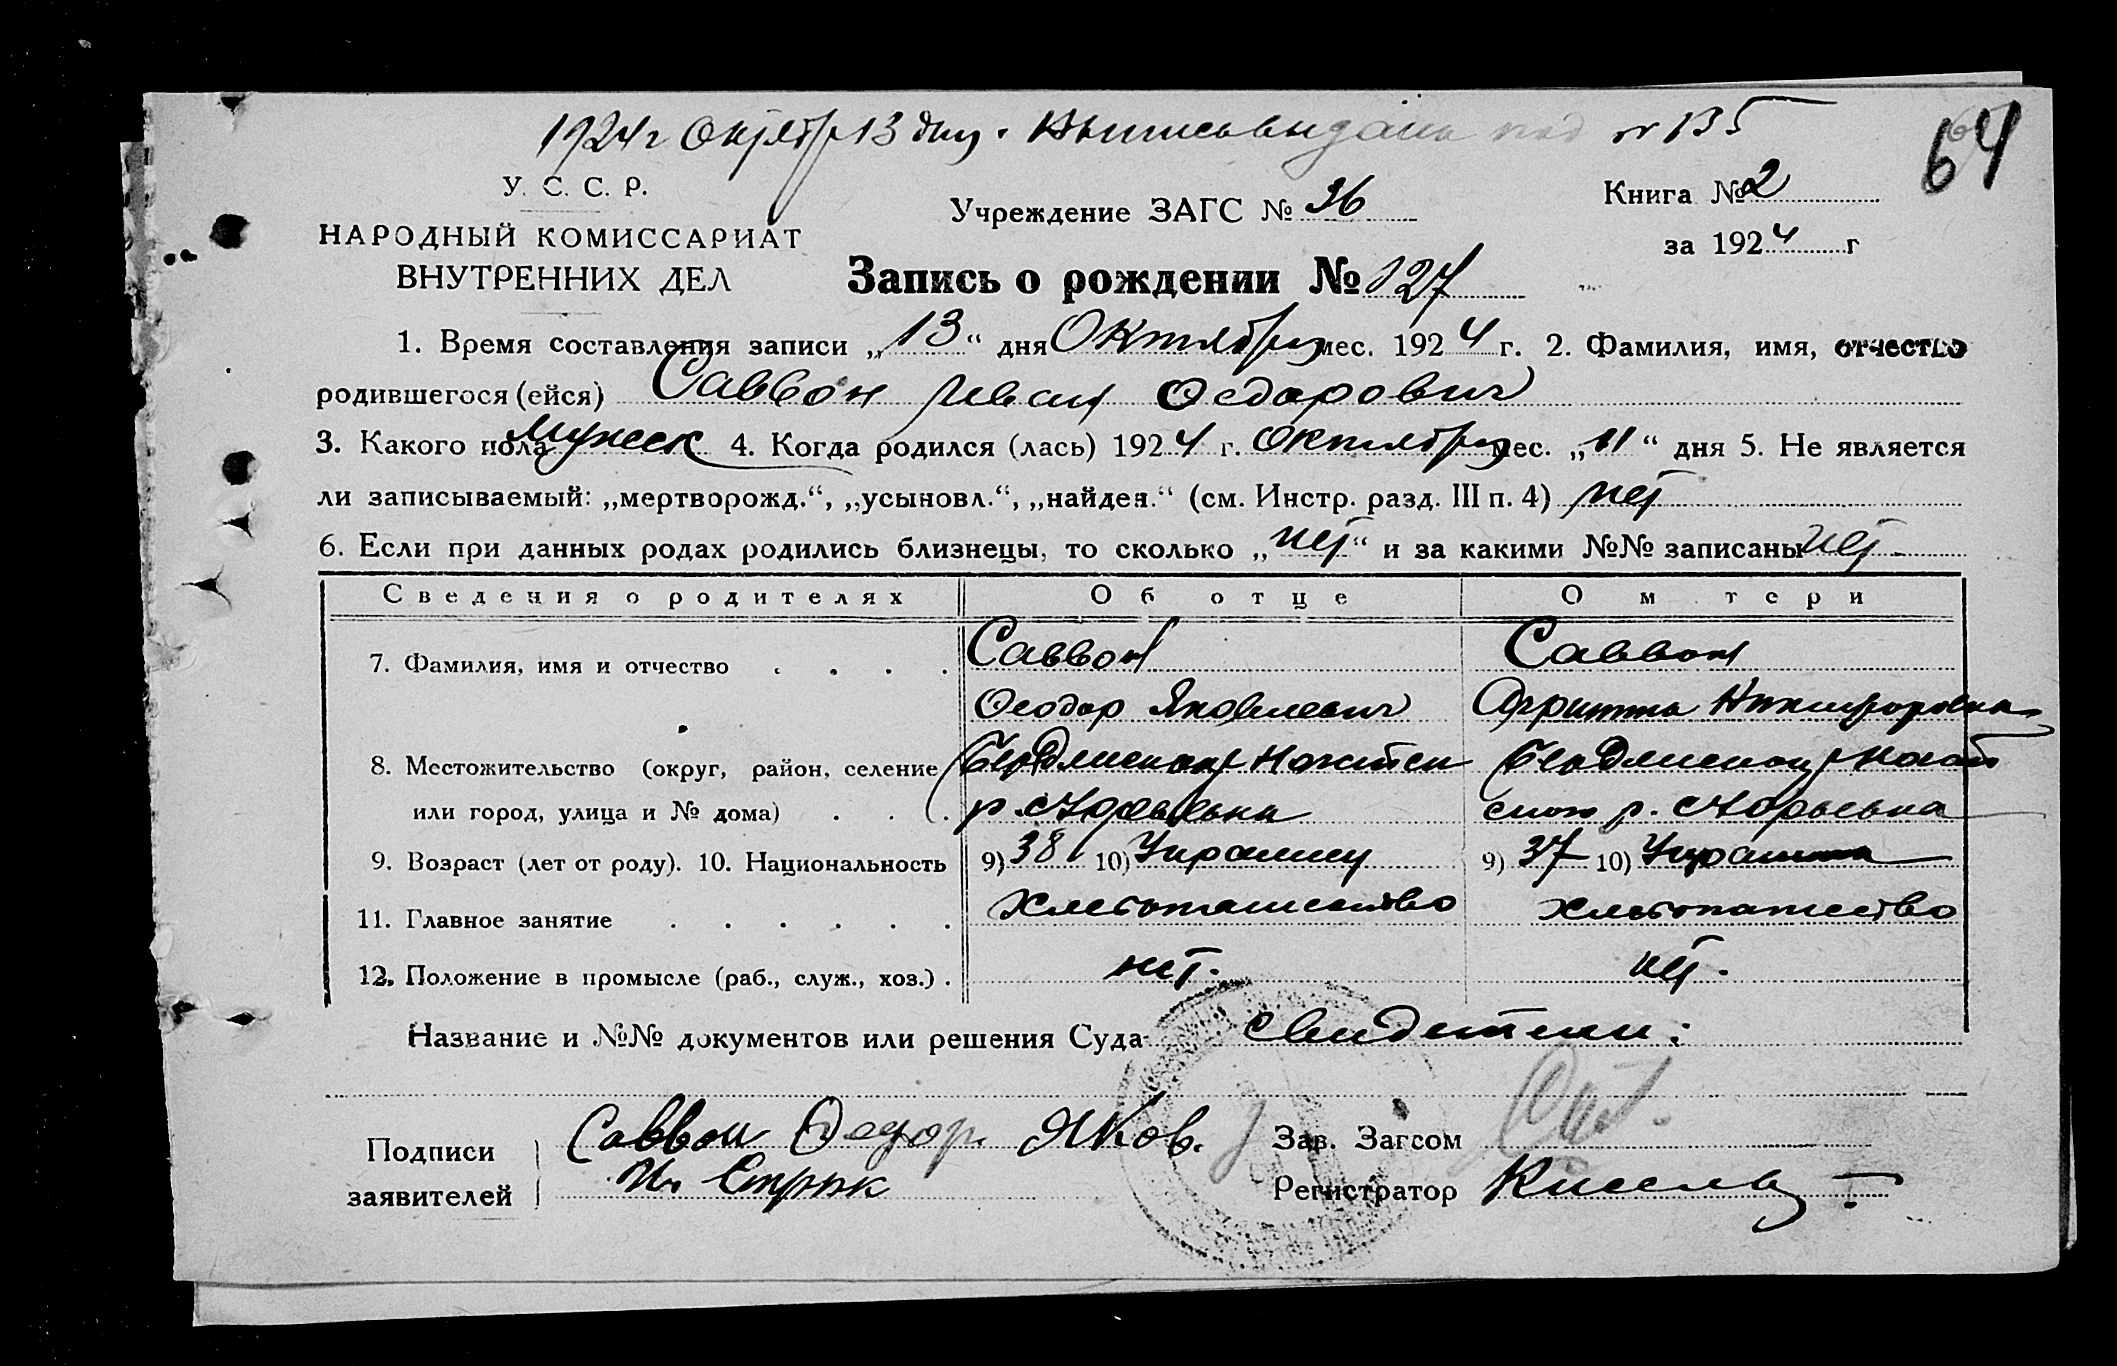 1924 г Октябр 13 дня. Выпись выдана под № 135
64
У. С. С. Р.
НАРОДНЫЙ КОМИССАРИАТ
ВНУТРЕННИХ ДЕЛ
Учреждение ЗАГС № 36
Книга № 2
за 1924 г
Запись о рождении № 127
1. Время составления записи „13“ дня Октября мес. 1924 г. 2. Фамилия, имя, отчество
родившегося (ейся) Саввон Иван Феодорович
3. Какого пола Мужск 4. Когда родился (лась) 1924 г. Октября мес. „11“ дня 5. Не является
ли записываемый: „мертворожд.“, „усыновл.“, „найден.“ (см. Инстр. разд. III п. 4) нет
6. Если при данных родах родились близнецы, то сколько „нет“ и за какими №№ записаны нет.
Сведения о родителях Об отце О м тери
7. Фамилия, имя и отчество . . . . Саввон Саввон
Феодор Яковлевич Никифоровна
8. Местожительство (округ, район, селение
или город, улица и № дома) . . . р. с Юрьевка р. с Юрьевка
9. Возраст (лет от роду). 10. Национальность 9) 38 10) Украинец 9) 37 10) Украинка
11. Главное занятие . . . . . . Хлебопашество Хлебопашество
12. Положение в промысле (раб., служ., хоз.) . нет. нет.
Название и №№ документов или решения Суда Свидетели:
Подписи Саввон Федор Яков. Зав. Загсом
заявителей Регистратор